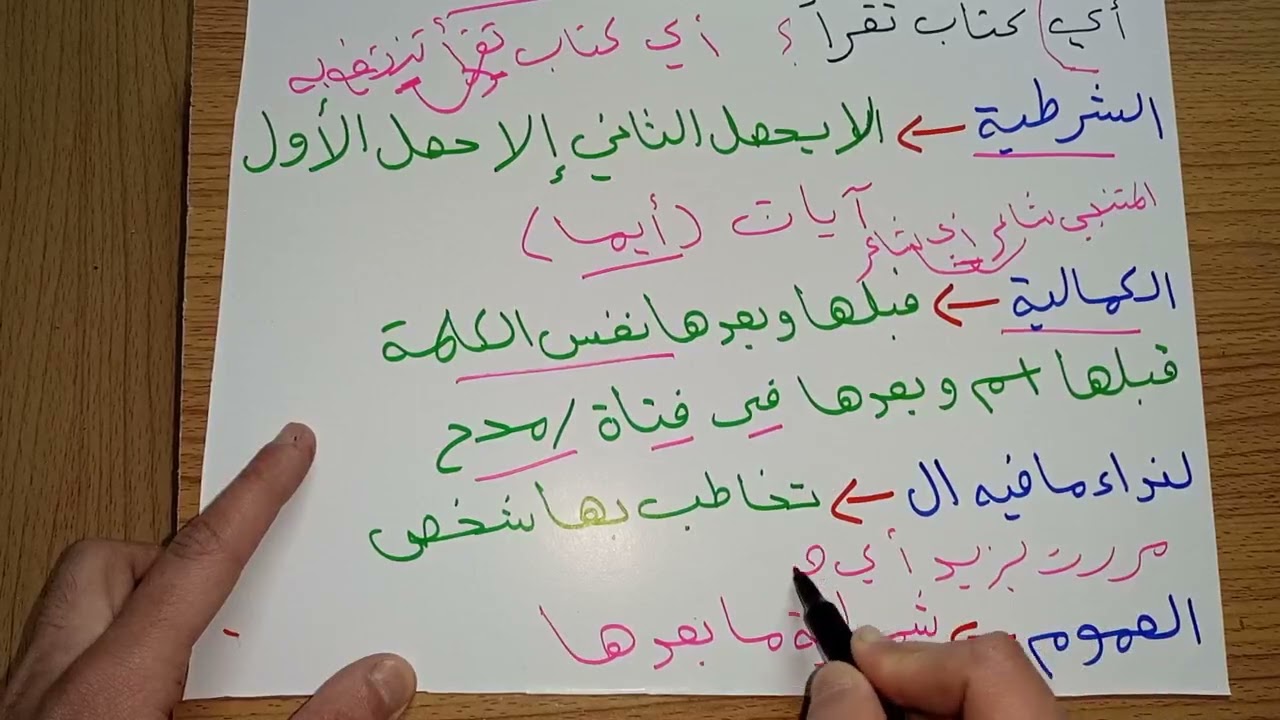 أي كتاب تقرأ ؟ أي كتاب تقرأ
الشرطية ← الا يحصل الثاني إلا حصل الأول
المتنبي شاعر أي شاعر
آيات (أيما)
الكمالية ← قبلها وبعدها نفس الكلمة
قبلها اسم وبعدها في فتاة / مدح
لنداء ما فيه ال ← تخاطب بها شخص
مررت بزيد أي
العموم ← ما بعدها